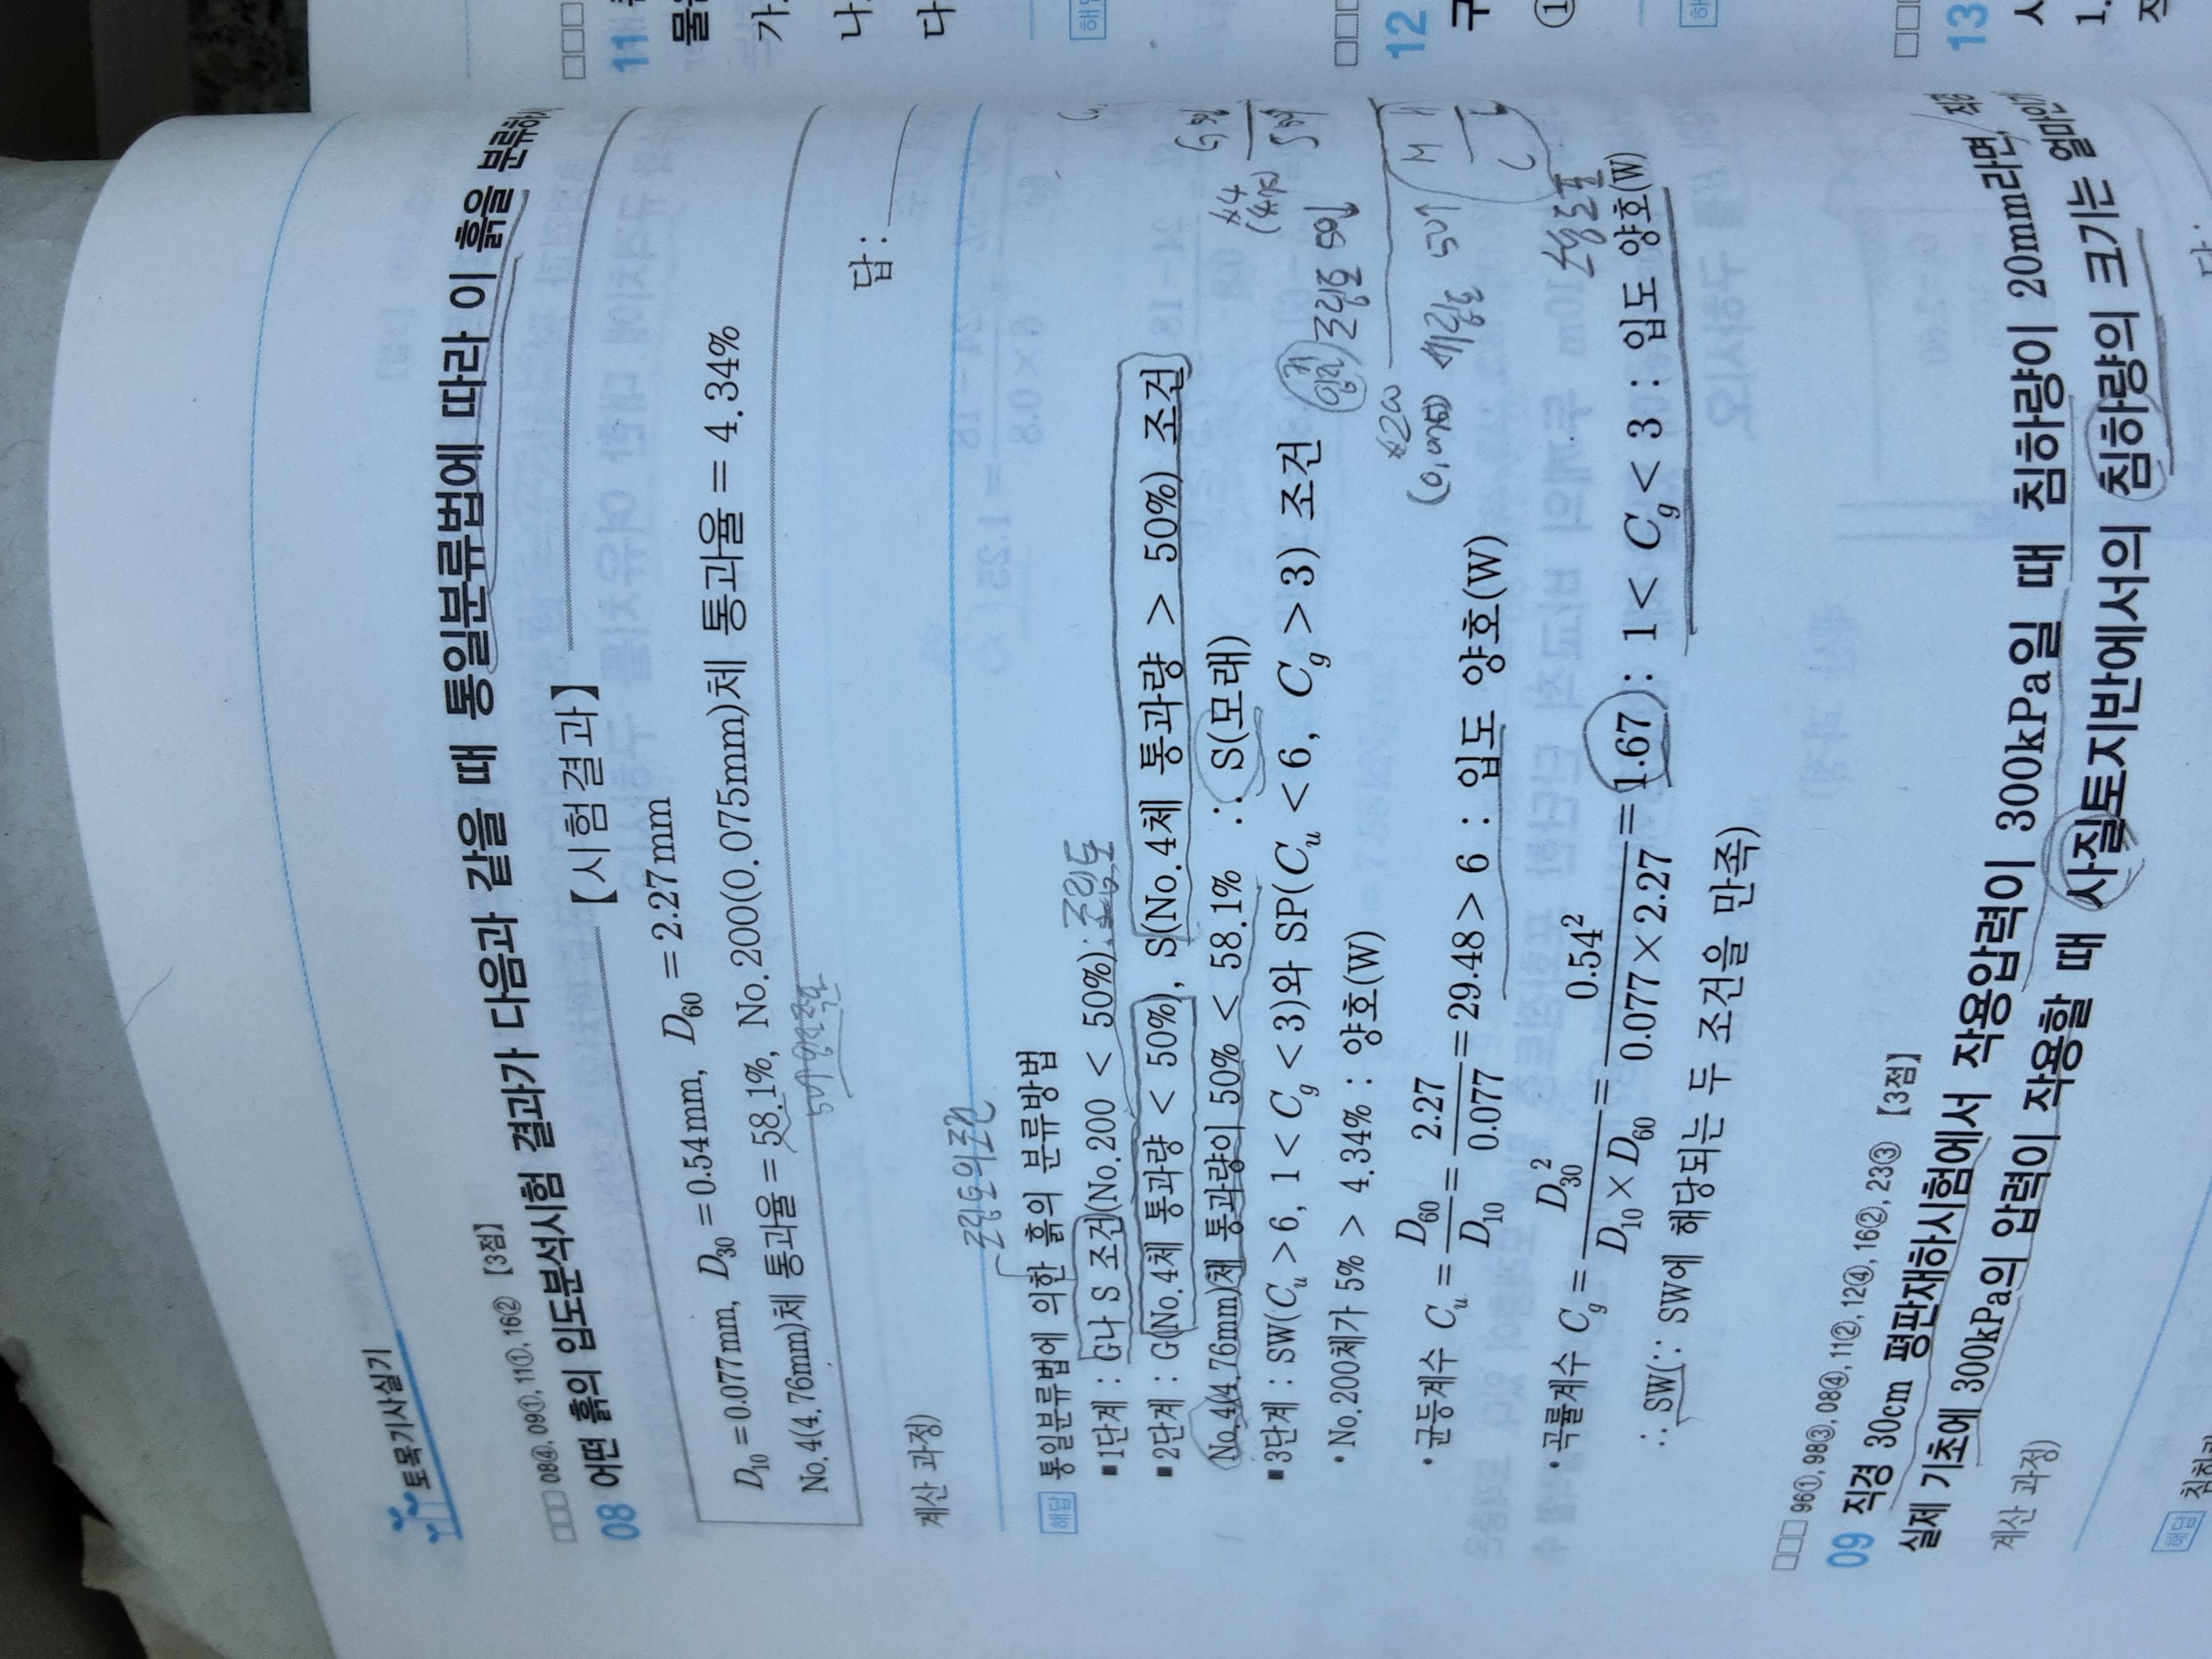 토목기사실기
□□□ 08④, 09①, 11①, 16② 【3점】
08 어떤 흙의 입도분석시험 결과가 다음과 같을 때 통일분류법에 따라 이 흙을 분류하
【시험결과】
D₁₀ = 0.077mm, D₃₀ = 0.54mm, D₆₀ = 2.27mm
No.4(4.76mm)체 통과율 = 58.1%, No.200(0.075mm)체 통과율 = 4.34%
계산 과정)
답 :
조립토의 조건
해답 통일분류법에 의한 흙의 분류방법
■ 1단계 : G나 S 조건(No.200 < 50%) : 조립토
■ 2단계 : G(No.4체 통과량 < 50%), S(No.4체 통과량 > 50%) 조건
No.4(4.76mm)체 통과량이 50% < 58.1% ∴ S(모래)
■ 3단계 : SW(Cᵤ > 6, 1 < C_g < 3)와 SP(Cᵤ < 6, C_g > 3) 조건
· No.200체가 5% > 4.34% : 양호(W)
· 균등계수 Cᵤ = D₆₀/D₁₀ = 2.27/0.077 = 29.48 > 6 : 입도 양호(W)
· 곡률계수 C_g = D₃₀²/(D₁₀ × D₆₀) = 0.54²/(0.077 × 2.27) = 1.67 : 1 < C_g < 3 : 입도 양호(W)
∴ SW(∵ SW에 해당되는 두 조건을 만족)
조립토 50↓
세립토 50↑
M
C
□□□ 96①, 98③, 08④, 11②, 12④, 16②, 23③ 【3점】
09 직경 30cm 평판재하시험에서 작용압력이 300kPa일 때 침하량이 20mm라면, 직경
실제 기초에 300kPa의 압력이 작용할 때 사질토지반에서의 침하량의 크기는 얼마인가
계산 과정)
답 :
해답
□□□
11
가.
나
다
해답
□□□
12
구
①
해
□□□
13
1.